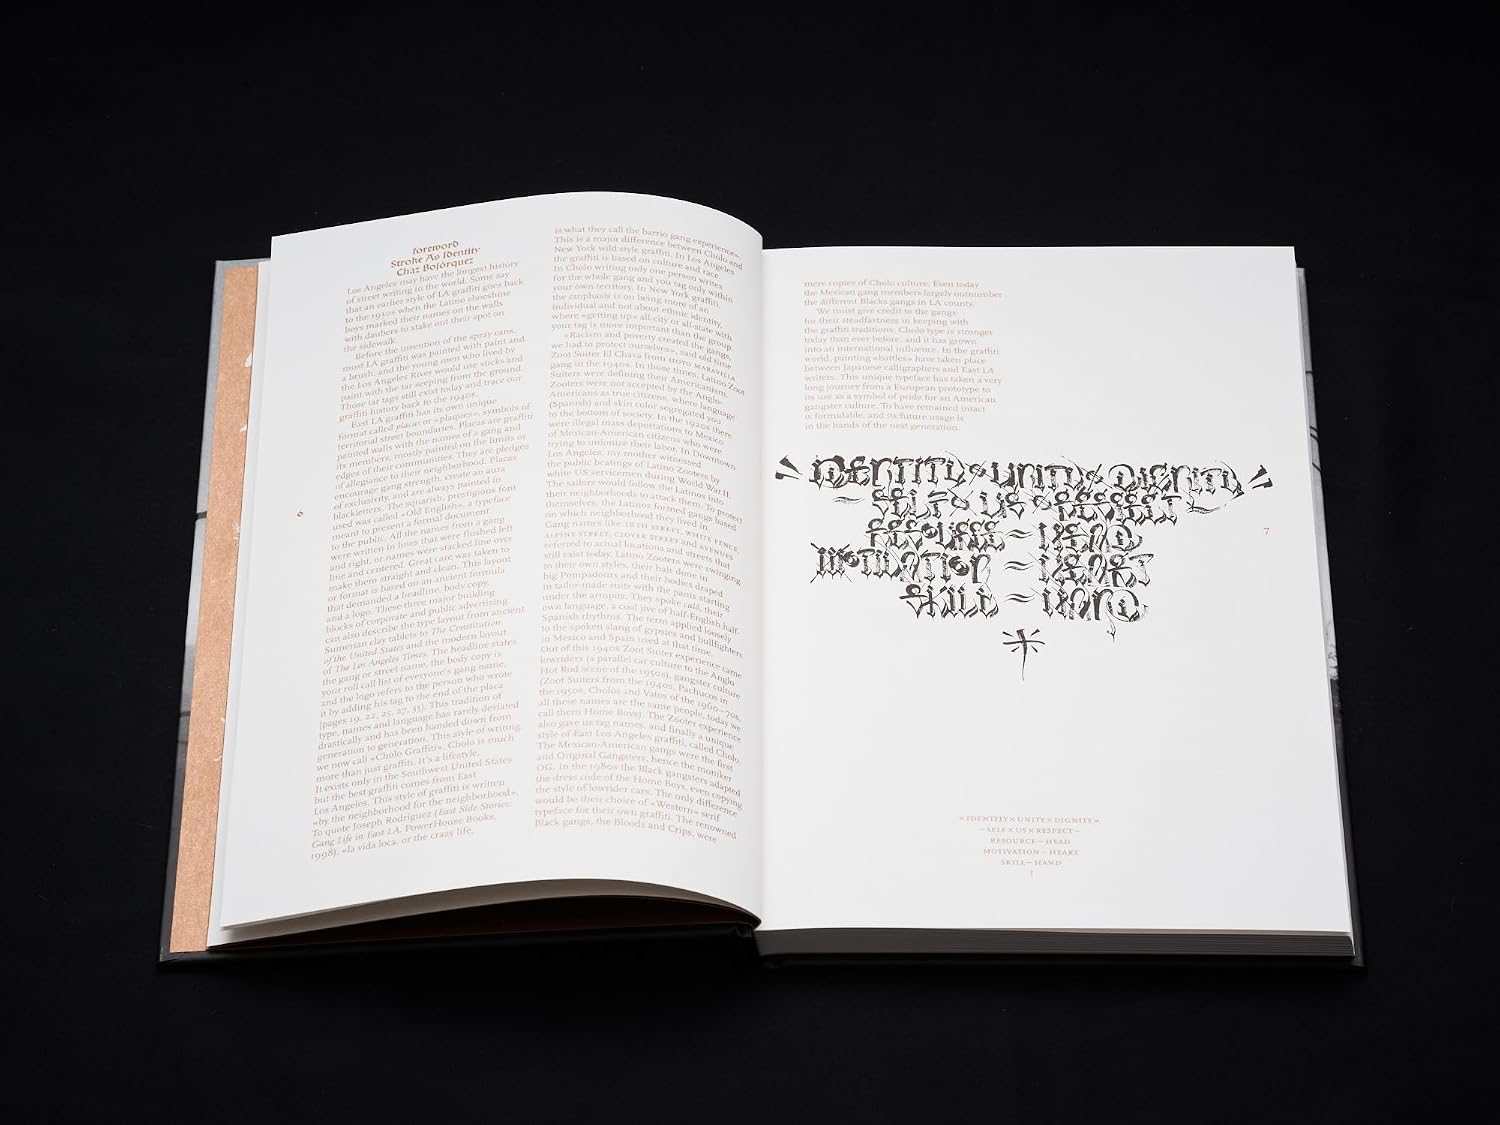 foreword
Stroke As Identity
Chaz Bojórquez
Los Angeles may have the longest history
of street writing in the world. Some say
that an earlier style of LA graffiti goes back
to the 1910s when the Latino shoeshine
boys marked their names on the walls
with daubers to stake out their spot on
the sidewalk.
Before the invention of the spray cans,
most LA graffiti was painted with paint and
a brush, and the young men who lived by
the Los Angeles River would use sticks and
paint with the tar seeping from the ground.
Those tar tags still exist today and trace our
graffiti history back to the 1940s.
East LA graffiti has its own unique
format called placas or «plaques», symbols of
territorial street boundaries. Placas are graffiti
painted walls with the names of a gang and
its members, mostly painted on the limits or
edges of their communities. They are pledges
of allegiance to their neighborhood. Placas
encourage gang strength, create an aura
of exclusivity, and are always painted in
blackletters. The squarish, prestigious font
used was called «Old English», a typeface
meant to present a formal document
to the public. All the names from a gang
were written in lines that were flushed left
and right, or names were stacked line over
line and centered. Great care was taken to
make them straight and clean. This layout
or format is based on an ancient formula
that demanded a headline, body copy,
and a logo. These three major building
blocks of corporate and public advertising
can also describe the type layout from ancient
Sumerian clay tablets to The Constitution
of the United States and the modern layout
of The Los Angeles Times. The headline states
the gang or street name, the body copy is
your roll call list of everyone's gang name,
and the logo refers to the person who wrote
it by adding his tag to the end of the placa
(pages 19, 22, 25, 27, 35). This tradition of
type, names and language has rarely deviated
drastically and has been handed down from
generation to generation. This style of writing,
we now call «Cholo Graffiti». Cholo is much
more than just graffiti. It's a lifestyle,
It exists only in the Southwest United States,
but the best graffiti comes from East
Los Angeles. This style of graffiti is written
«by the neighborhood for the neighborhood».
To quote Joseph Rodríguez (East Side Stories:
Gang Life in East LA, PowerHouse Books,
1998), «la vida loca, or the crazy life,
6
is what they call the barrio gang experience».
This is a major difference between Cholo and
New York wild style graffiti. In Los Angeles
the graffiti is based on culture and race
In Cholo writing only one person writes
for the whole gang and you tag only within
your own territory. In New York graffiti
the emphasis is on being more of an
individual and not about ethnic identity,
where «getting up» all-city or all-state with
your tag is more important than the group.
«Racism and poverty created the gangs,
we had to protect ourselves», said old time
Zoot Suiter El Chava from HOYO MARAVILLA
gang in the 1940s. In those times, Latino Zoot
Suiters were defining their Americanism.
Zooters were not accepted by the Anglo-
Americans as true citizens, where language
(Spanish) and skin color segregated you
to the bottom of society. In the 1920s there
were illegal mass deportations to Mexico
of Mexican-American citizens who were
trying to unionize their labor. In Downtown
Los Angeles, my mother witnessed
the public beatings of Latino Zooters by
white US servicemen during World War II.
The sailors would follow the Latinos into
their neighborhoods to attack them. To protect
themselves, the Latinos formed gangs based
on which neighborhood they lived in.
Gang names like, 18TH STREET, WHITE FENCE,
ALPINE STREET, CLOVER STREET and AVENUES
referred to actual locations and streets that
still exist today. Latino Zooters were swinging
to their own styles, their hair done in
big Pompadours and their bodies draped
in tailor-made suits with the pants starting
under the armpits. They spoke caló, their
own language, a cool jive of half-English half-
Spanish rhythms. The term applied loosely
to the spoken slang of gypsies and bullfighters
in Mexico and Spain used at that time.
Out of this 1940s Zoot Suiter experience came
lowriders (a parallel car culture to the Anglo
Hot Rod scene of the 1950s), gangster culture
(Zoot Suiters from the 1940s, Pachucos in
the 1950s, Cholos and Vatos of the 1960–70s,
all these names are the same people, today we
call them Home Boys). The Zooter experience
also gave us tag names, and finally a unique
style of East Los Angeles graffiti, called Cholo.
The Mexican-American gangs were the first
and Original Gangsters, hence the moniker
OG. In the 1980s the Black gangsters adapted
the dress code of the Home Boys, even copying
the style of lowrider cars. The only difference
would be their choice of «Western» serif
typeface for their own graffiti. The renowned
Black gangs, the Bloods and Crips, were
mere copies of Cholo culture. Even today
the Mexican gang members largely outnumber
the different Blacks gangs in LA county.
We must give credit to the gangs
for their steadfastness in keeping with
the graffiti traditions. Cholo type is stronger
today than ever before, and it has grown
into an international influence. In the graffiti
world, painting «battles» have taken place
between Japanese calligraphers and East LA
writers. This unique typeface has taken a very
long journey from a European prototype to
its use as a symbol of pride for an American
gangster culture. To have remained intact
is formulable, and its future usage is
in the hands of the next generation.
IDENTITY × UNITY × DIGNITY
~ SELF × US × RESPECT
RESOURCE ~ HEAD
MOTIVATION ~ HEART
SKILL ~ HAND
7
× IDENTITY × UNITY × DIGNITY ×
– SELF × US × RESPECT –
RESOURCE – HEAD
MOTIVATION – HEART
SKILL – HAND